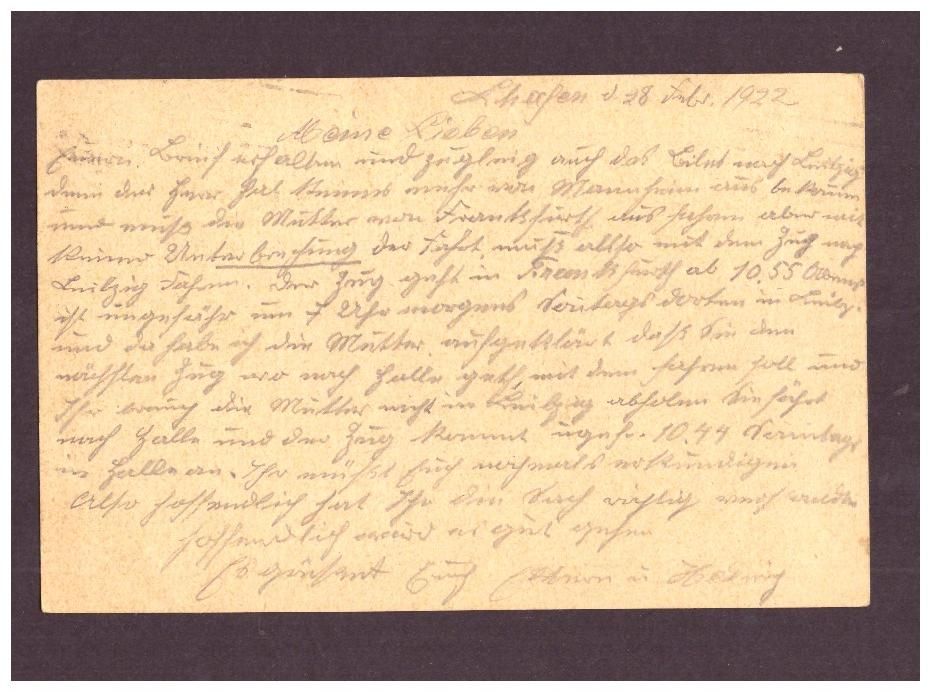 Lhafen d. 28 Febr. 1922
Meine Lieben
Euern Brief erhalten und zugleig auch das Bilet nach Leibzig
denn der Herr hat keines mehr von Mannheim aus bekomm
und muß die Mutter von Frankfurth aus fahren aber mit
keiner Unterbrechung der Fahrt, muß also mit dem Zug nach
Leibzig fahren. Der Zug geht in Frankfurth ab 10.55 Abends
ist ungefähr um 7 Uhr morgens Sontags dorten in Leibz.
und da habe ich die Mutter aufgeklärt daß Sie den
nächsten Zug wo nach Halle geth, mit dem fahren soll und
Ihr brauch die Mutter nicht in Leibzig abholen Sie fährt
nach Halle und der Zug kommt ugef. 10.44 Sonntags
in Halle an. Ihr müßt Euch nochmals erkundigen
Also hoffendlich hat Ihr die Sach richtig verstanden
hoffendlich wird es gut gehen
Es griesent Euch u Hedwig